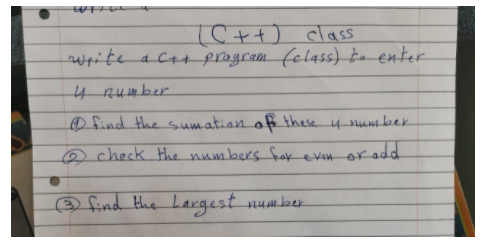 (C++) class
write a C++ program (class) to enter
4 number
① find the sumation of these 4 number
② check the numbers for even or odd
③ find the Largest number